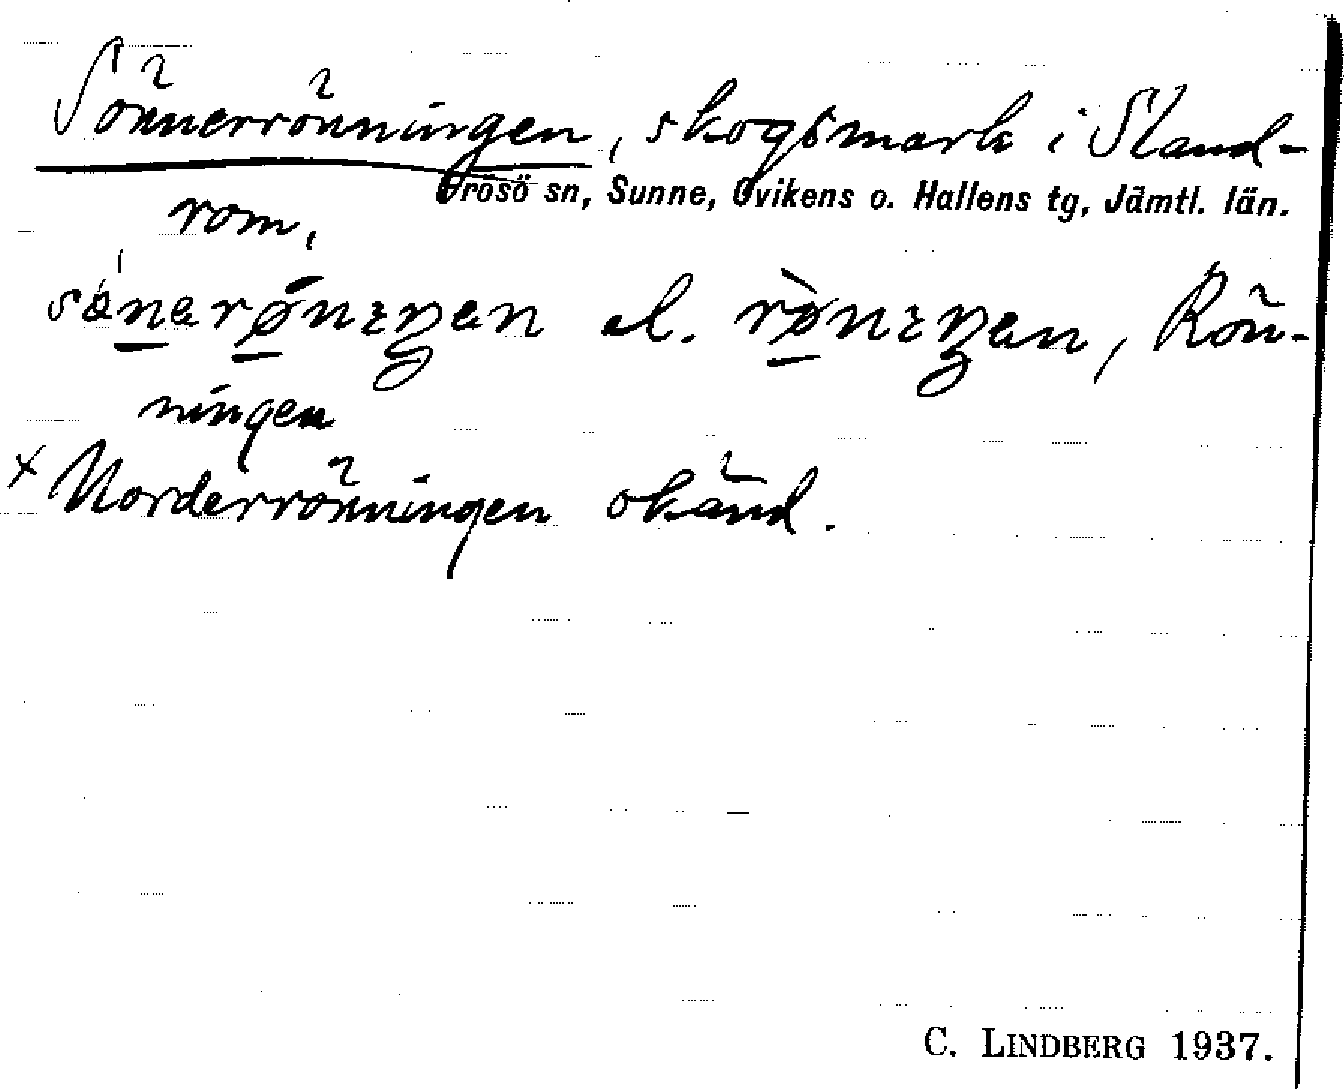 Sönnerrönningen, skogsmark i Stand-
Frösö sn, Sunne, Ovikens o. Hallens tg, Jämtl. län.
rom,
el. Rön-
ningen
× Norderrönningen okänd.
C. LINDBERG 1937.